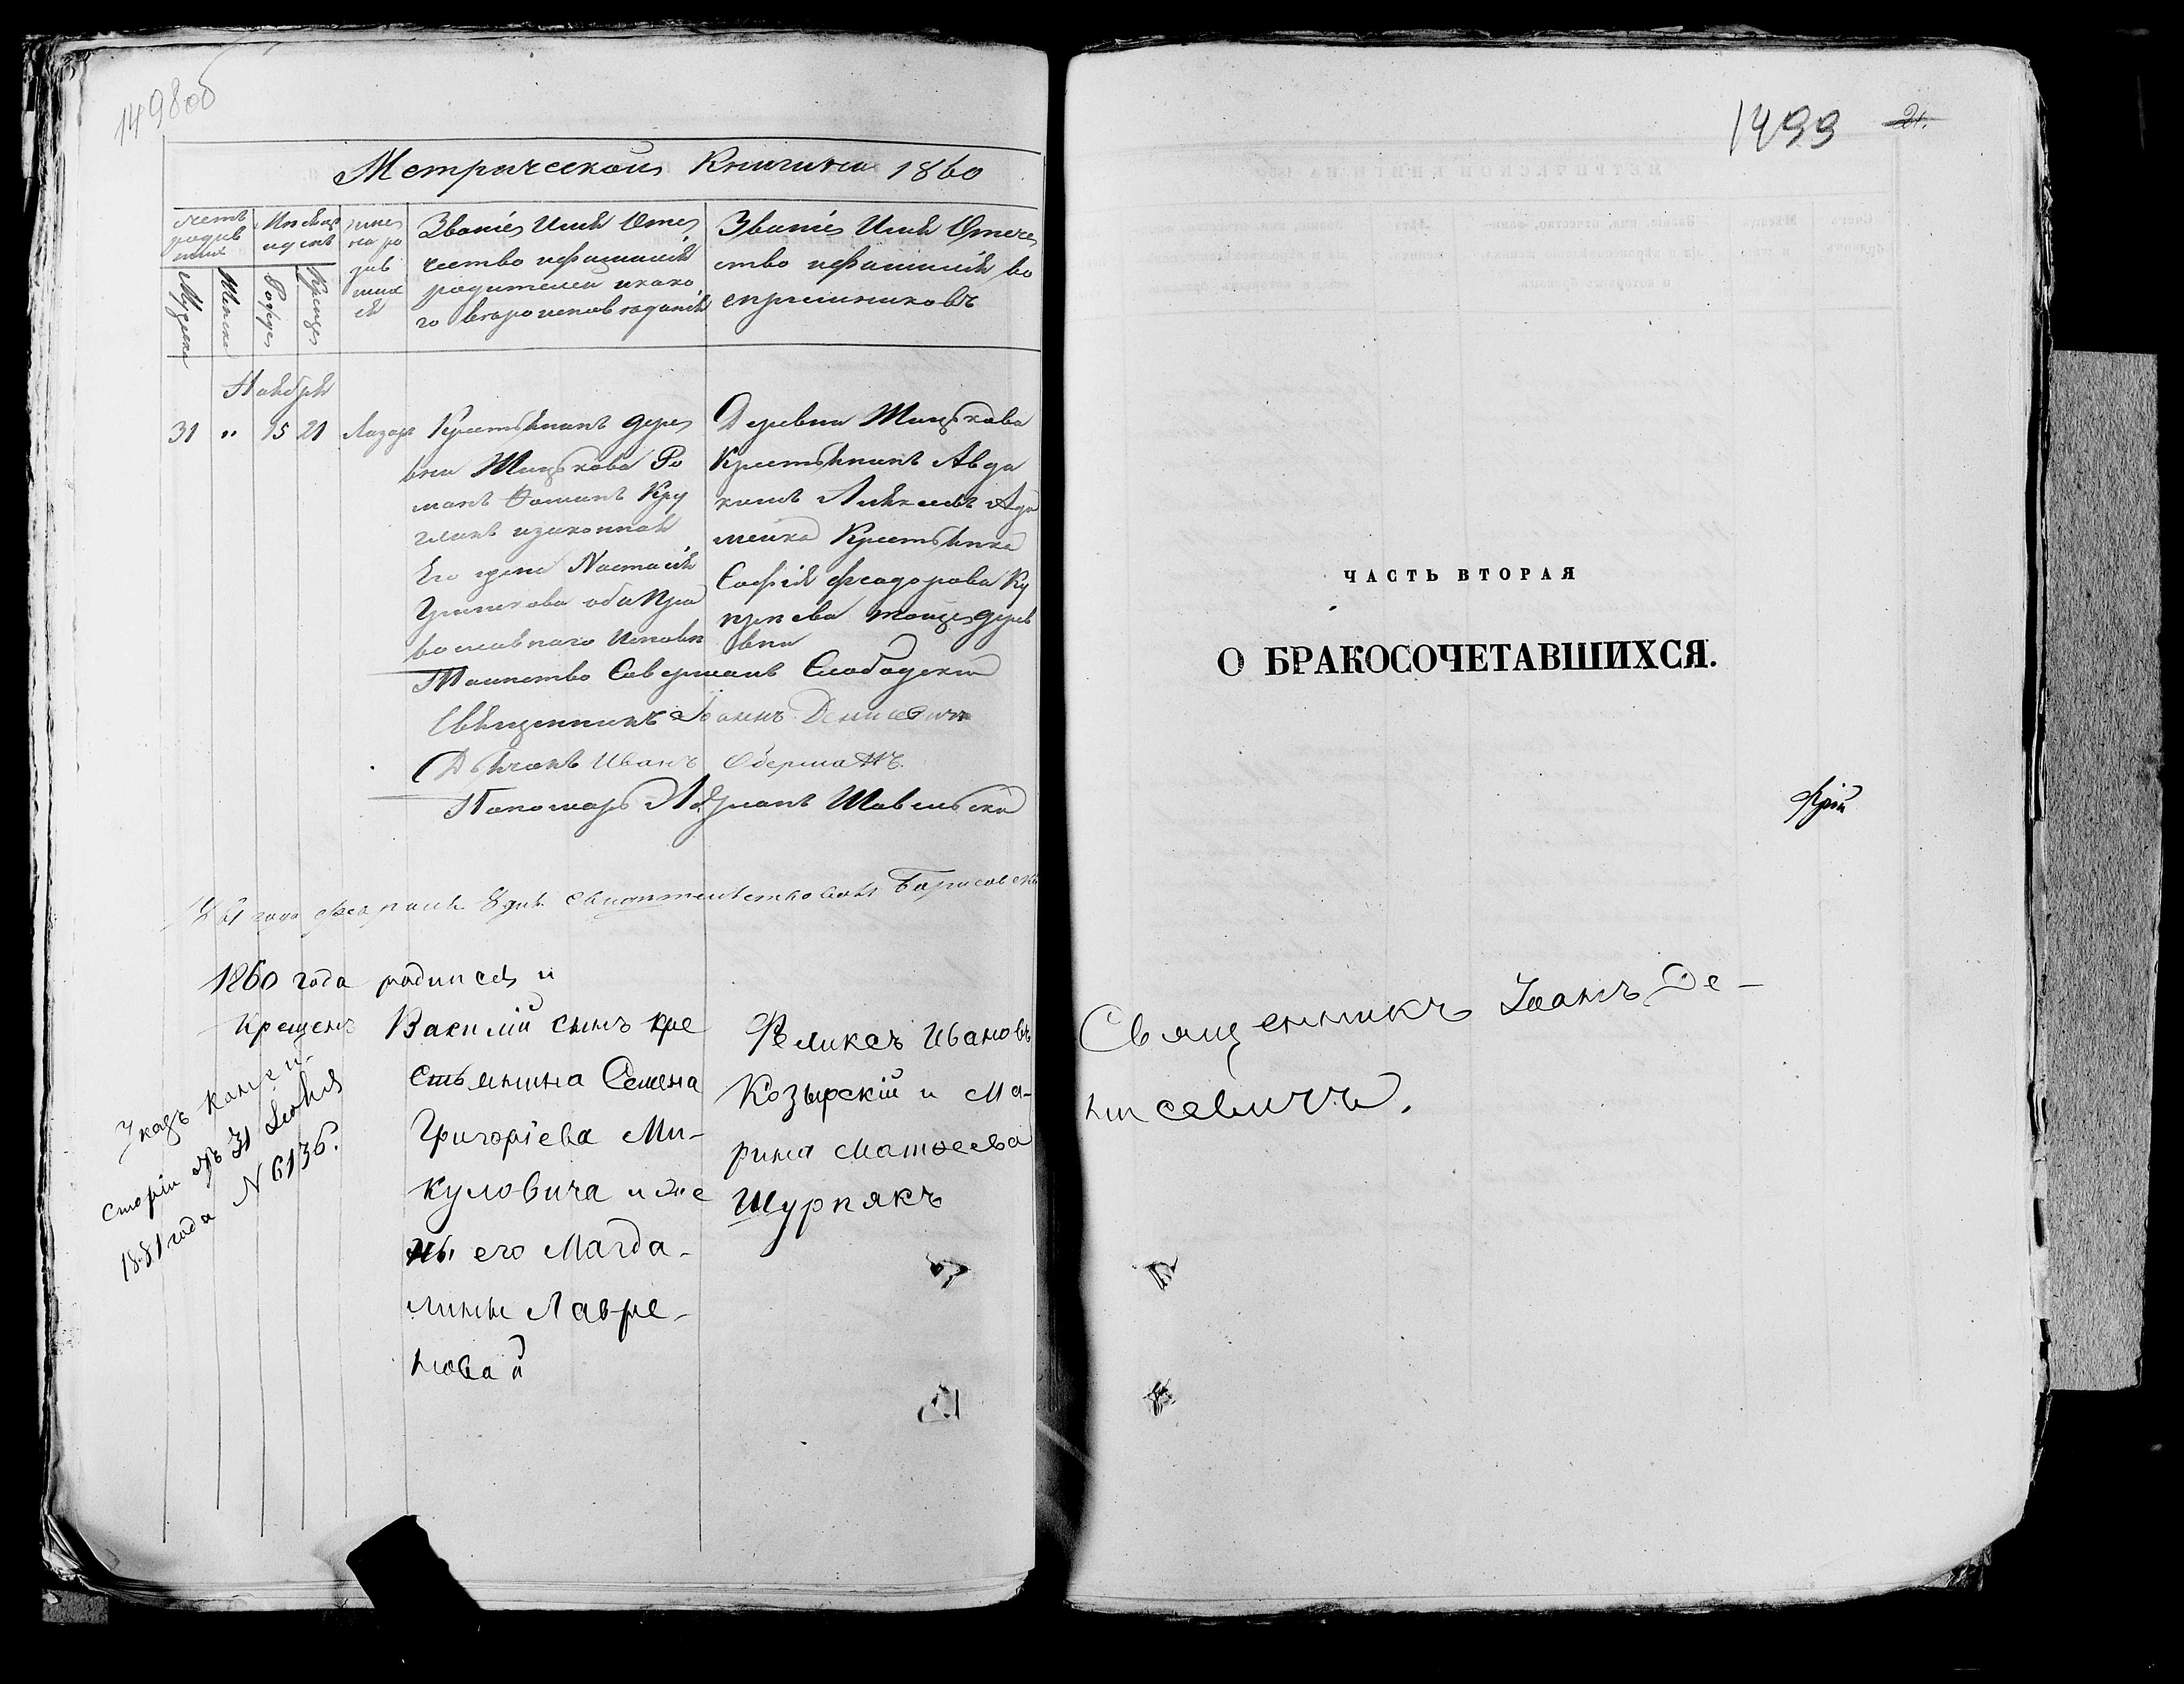 1498 об
Метрической Книги на 1860
Счетъ родив шихся
Мѣсяцъ и день
имя на ро див ших ся
Званіе Имя Отче
чество и фамилія
родителей и како
го вѣроисповѣданія
Званіе Имя Отече
ство и фамилія во
спріемниковъ
Мужеска
Женска
Рожде
Креще
Ноября
31 " 15 21 Лазарь
Крестьянинъ дере
вни Жицкова Ро
манъ Фоминъ Кру
гликъ и законная
Его жена Настасія
оба Пра
вославнаго Исповѣ
Деревни Жицкова
Крестьянинъ Авдо
кимъ Ада
мейко Крестьянка
Софія Феодорова Ку
тойже дерев
вни
Таинство Совершалъ Слободскій
Священникъ Іоаннъ Денисевичъ
Дьячокъ Иванъ Оберманъ
Пономарь Шавельскій
1861 года Февраля 8 дня свидѣтельствовалъ Борисовскій
1860 года родился и
Крещенъ Василій сынъ кре
стьянина Семена
Григоріева Ми-
куловича и же
ны его Магда-
лины Лавре-
новой
Феликсъ Ивановъ
Козырскій и Ма-
рина Матѳеева
Шурпякъ
Указъ Консі-
сторіи отъ 31 Іюля
1881 года N 6136.
1499 21.
ЧАСТЬ ВТОРАЯ
О БРАКОСОЧЕТАВШИХСЯ.
Священникъ Іоаннъ Де-
нисевичъ.